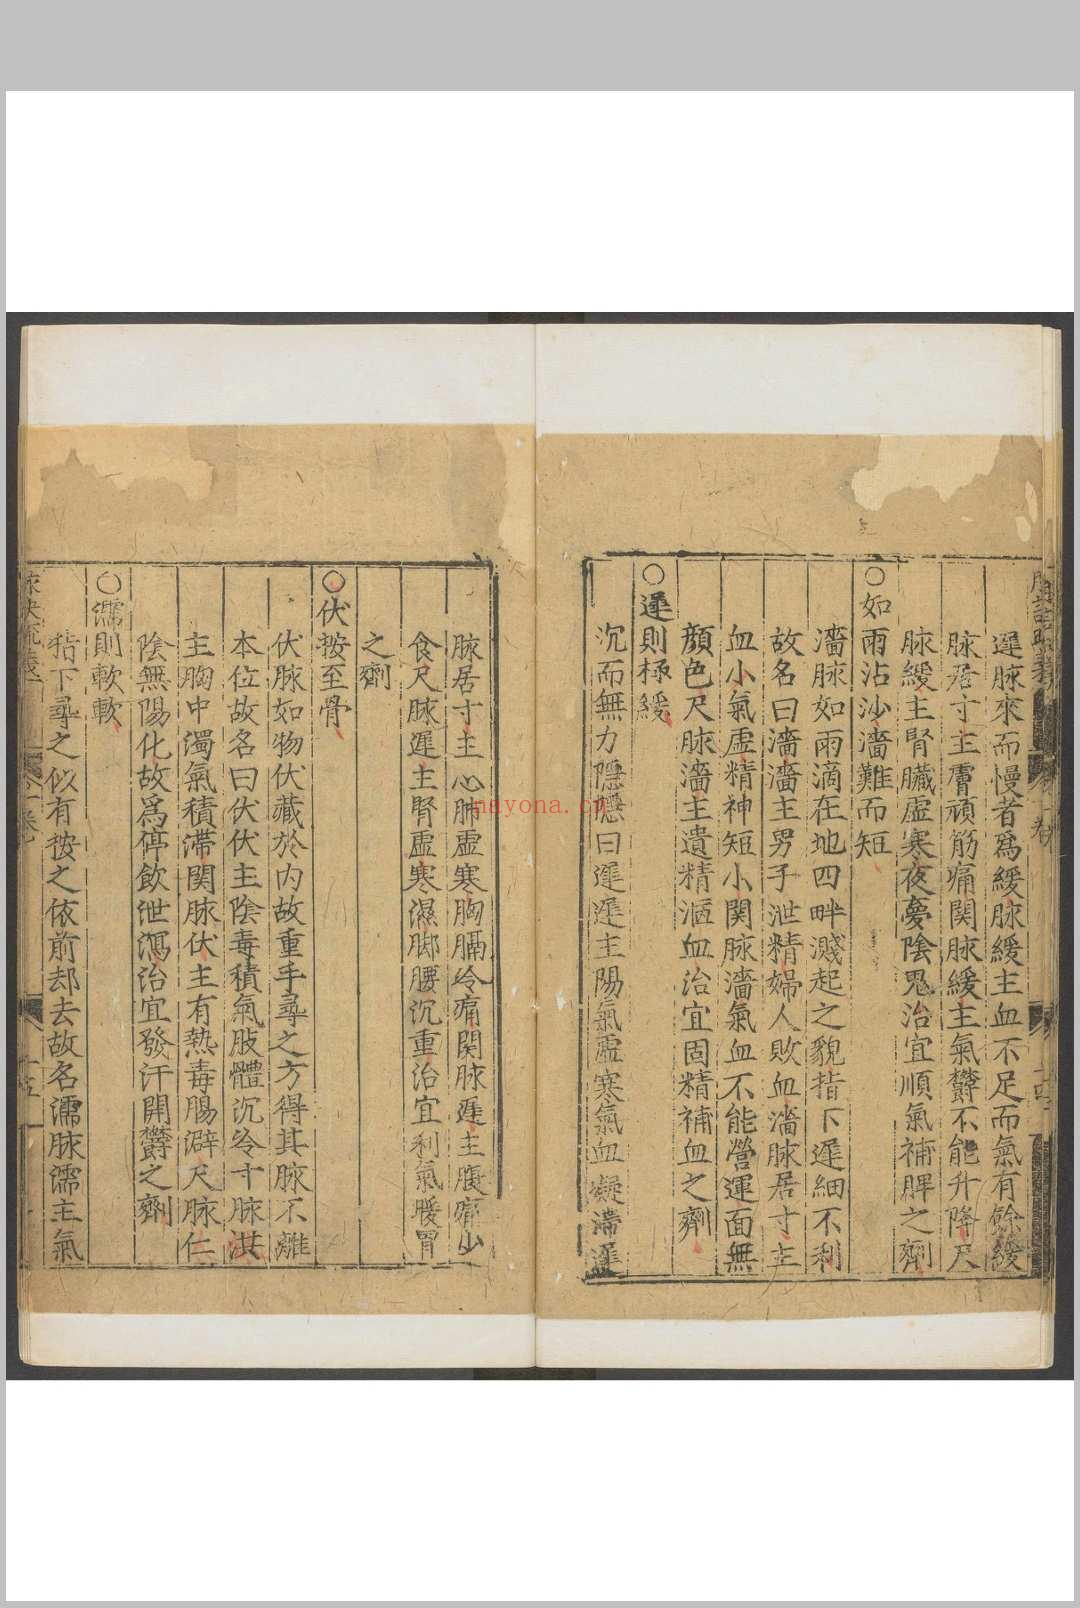 遲脉來而慢者爲緩脉緩主血不足而氣有餘緩
脉居寸主膚頑筋痛関脉緩主氣欝不能升降尺
脉緩主腎臟虛寒夜夢陰鬼治宜順氣補脾之劑
○如雨沾沙濇難而短
濇脉如雨滴在地四畔濺起之貌指下遲細不利
故名曰濇濇主男子泄精婦人敗血濇脉居寸主
血小氣虛精神短小関脉濇氣血不能營運面無
顔色尺脉濇主遺精漚血治宜固精補血之劑
○遲則極緩
沉而無力隱隱曰遲遲主陽氣虛寒氣血凝滯遲
脉居寸主心肺虛寒胸膈冷痛関脉遲主腹痛少
食尺脉遲主腎虛寒濕脚腰沉重治宜利氣暖胃
之劑
○伏按至骨
伏脉如物伏藏於内故重手尋之方得其脉不離
本位故名曰伏伏主陰毒積氣肢體沉冷寸脉洪
主胸中濁氣積滯関脉伏主有熱毒腸澼尺脉仁
陰無陽化故爲停飲泄瀉治宜發汗開欝之劑
○濡則軟軟
指下尋之似有按之依前却去故名濡脉濡主氣
nayona.cn